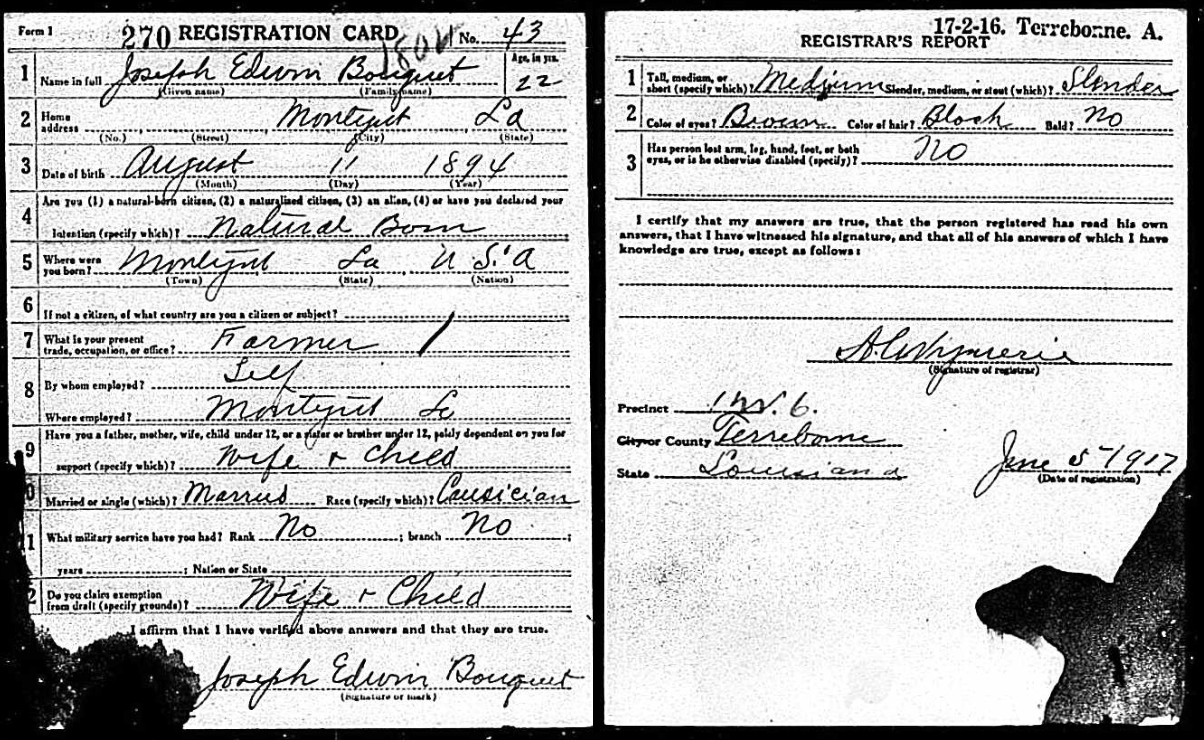 Form 1 270 REGISTRATION CARD No. 43
1 Name in full Joseph Edwin Bouquet Age, in yrs. 22
(Given name) (Family name)
2 Home address Montegut La
(No.) (Street) (City) (State)
3 Date of birth August 11 1894
(Month) (Day) (Year)
4 Are you (1) a natural-born citizen, (2) a naturalized citizen, (3) an alien, (4) or have you declared your
intention (specify which)? Natural Born
5 Where were you born? Montegut La U.S.A
(Town) (State) (Nation)
6 If not a citizen, of what country are you a citizen or subject?
7 What is your present trade, occupation, or office? Farmer
8 By whom employed? Self
Where employed? Montegut La
9 Have you a father, mother, wife, child under 12, or a sister or brother under 12, solely dependent on you for
support (specify which)? Wife & Child
0 Married or single (which)? Married Race (specify which)? Causician
1 What military service have you had? Rank No ; branch No ;
years ; Nation or State
2 Do you claim exemption from draft (specify grounds)? Wife & Child
I affirm that I have verified above answers and that they are true.
Joseph Edwin Bouquet
(Signature or mark)
17-2-16. Terrebonne. A.
REGISTRAR'S REPORT
1 Tall, medium, or short (specify which)? Medium Slender, medium, or stout (which)? Slender
2 Color of eyes? Brown Color of hair? Black Bald? No
3 Has person lost arm, leg, hand, foot, or both eyes, or is he otherwise disabled (specify)? No
I certify that my answers are true, that the person registered has read his own
answers, that I have witnessed his signature, and that all of his answers of which I have
knowledge are true, except as follows:
(Signature of registrar)
Precinct 1 W. 6.
City or County Terrebonne
State Louisiana
June 5 1917
(Date of registration)